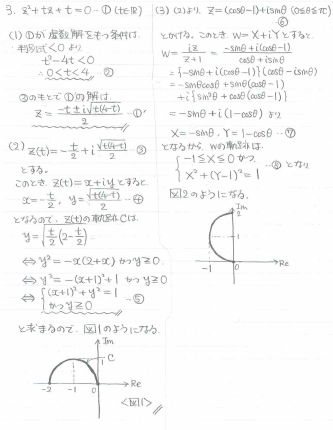 3. z²+tz+t=0 …① (t∈ℝ)
(1) ①が虚数解をもつ条件は、
判別式<0 より
t²-4t<0
∴ 0<t<4 …②
②のもとで①の解は、
z = (-t±i√(t(4-t)))/2 …①'
(2) z(t) = -t/2 + i √(t(4-t))/2 …③
とする。
このとき、z(t)=x+iy とすると
x=-t/2, y=√(t(4-t))/2 …④
となるので、z(t)の軌跡Cは、
y=√(t/2(2-t/2))
⇔ y²=-x(2+x) かつ y≧0
⇔ y²=-(x+1)²+1 かつ y≧0
⇔ { (x+1)²+y²=1
かつ y≧0 …⑤
と求まるので、図1のようになる。
Im
1
C
-2 -1 0 Re
<図1>
(3) (2)より、z=(cosθ-1)+isinθ (0≦θ≦π)
⑥
とかける。このとき、w=X+iYとすると、
w = iz/(z+1) = (-sinθ+i(cosθ-1))/(cosθ+isinθ)
={-sinθ+i(cosθ-1)}(cosθ-isinθ)
=-sinθcosθ+sinθ(cosθ-1)
+i{sin²θ+cosθ(cosθ-1)}
=-sinθ+i(1-cosθ) より
X=-sinθ, Y=1-cosθ …⑦
となるから、wの軌跡は、
{ -1≦X≦0 かつ
X²+(Y-1)²=1 …⑧ となり
図2のようになる。
Im
2
1
-1 0 Re